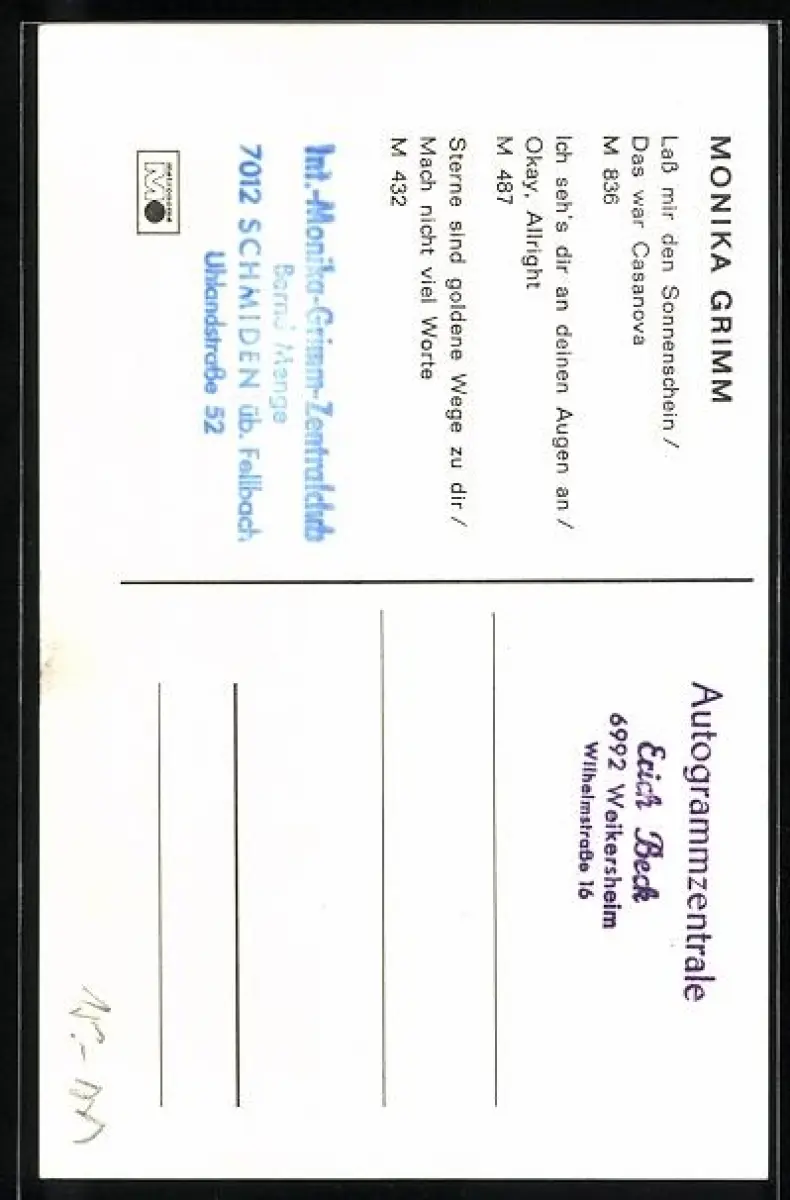 MONIKA GRIMM
Laß mir den Sonnenschein /
Das war Casanova
M 836
Ich seh's dir an deinen Augen an /
Okay, Allright
M 487
Sterne sind goldene Wege zu dir /
Mach nicht viel Worte
M 432
Int.-Monika-Grimm-Zentralclub
Bernd Menge
7012 SCHMIDEN üb. Fellbach
Uhlandstraße 52
metronome
Autogrammzentrale
Erich Beck
6992 Weikersheim
Wilhelmstraße 16